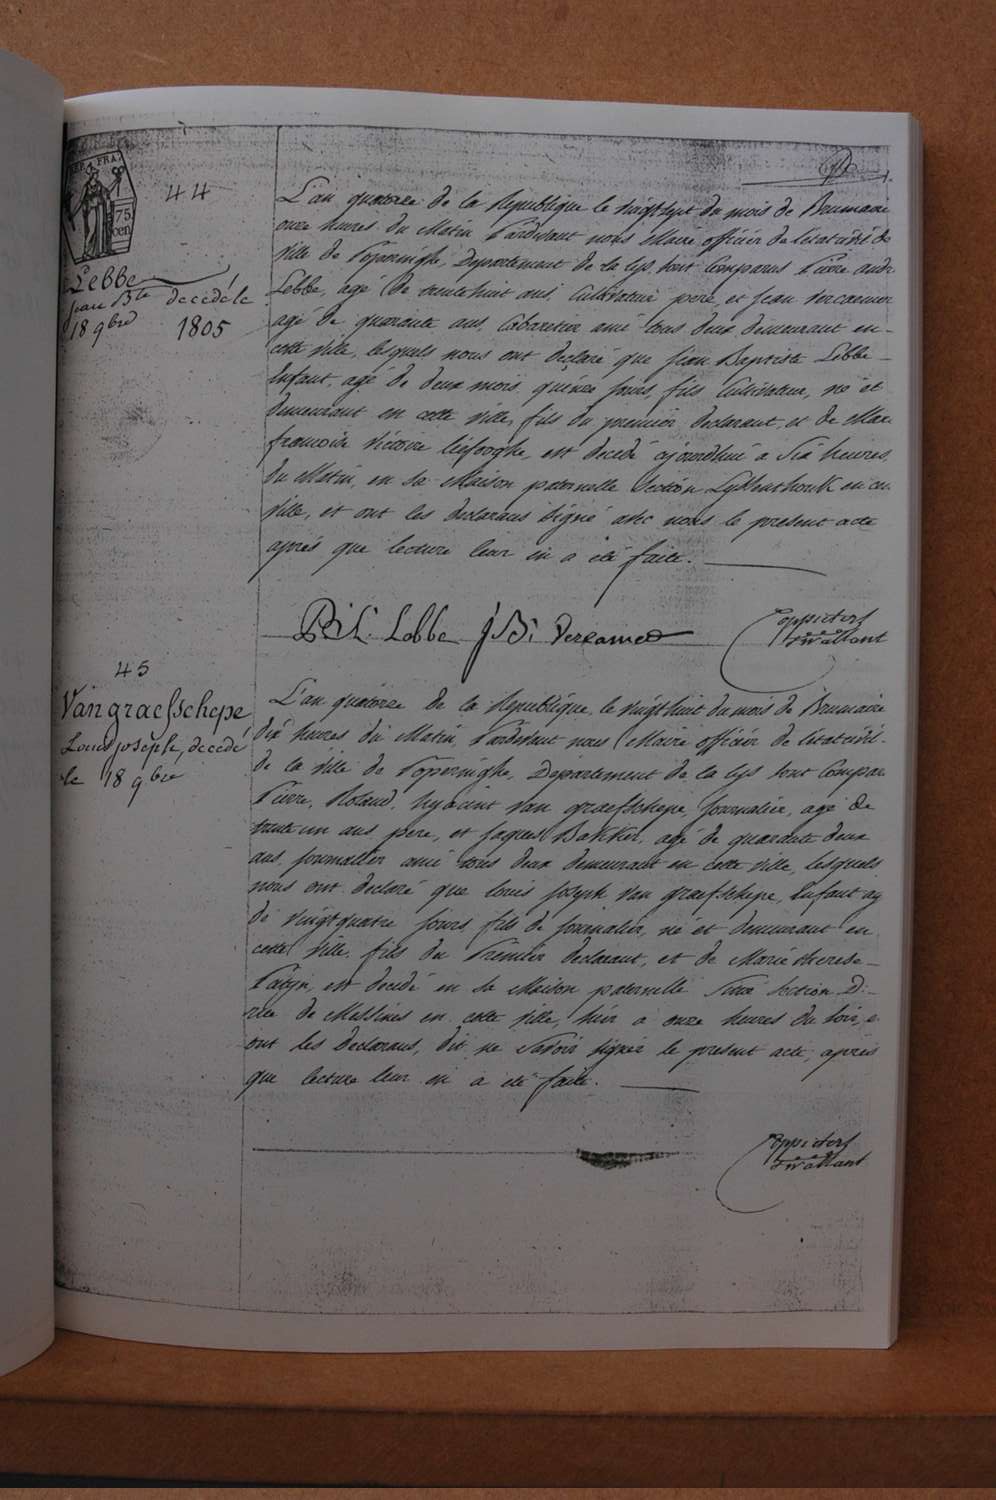 REP. FRA.
75
cen
44
Lebbe
Jean Bte decedé le
18 9bre 1805
L'an quatorze de la Republique le vingt sept du mois de Brumaire
onze heures du Matin Pardevant nous Maire officier de l'etat civil de
Ville de Poperinghe, Departement de la Lys, sont Comparus Pierre
Lebbe, agé de trente huit ans, Cultivateur pere, et Jean Vercamer
agé de quarante ans, Cabaretier ami tous deux demeurant en
cette Ville, lesquels nous ont declaré que Jean Baptiste Lebbe
Enfant, agé de deux mois quinze jours, fils Cultivateur, né et
demeurant en cette Ville, fils du premier declarant, et de Marie
francoise Victoire liefooghe, est decedé ajourdhui à Six heures
du Matin, en sa Maison paternelle Section en cette
Ville, et ont les declarans signé avec nous le present acte
aprés que lecture leur en a été faite.
P. Lebbe J: B: Vercamer
45
Van graefschepe
Louis joseph, decedé
le 18 9bre
L'an quatorze de la Republique, le vingt huit du mois de Brumaire
dix heures du Matin, Pardevant nous Maire officier de l'etat civil
de la Ville de Poperinghe, Departement de la Lys sont Compar
Pierre, Roland, hyacint Van graefschepe, journalier, agé de
trente un ans, pere, et Jaques Bakker, agé de quarante deux
ans, journallier ami tous deux demeurant en cette Ville, lesquels
nous ont declaré que louis joseph Van graefschepe, Enfant ag
de vingt quatre jours, fils de journalier, né et demeurant en
cette Ville, fils du Premier declarant, et de Marie therese
est decedé en sa Maison paternelle Sise Section D:
rue de Messines en cette Ville, hier a onze heures du soir, e
ont les declarans, dit ne savoir signer le present acte, aprés
que lecture leur en a été faite.